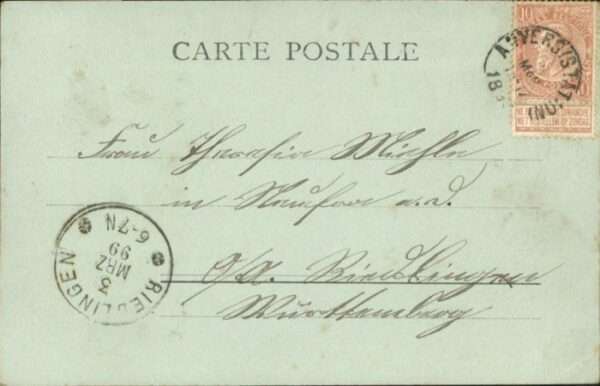 CARTE POSTALE
10
ANVERS (STAT
18
Frau Theresia Miehle
in Neufra a.d.
O/A. Riedlingen
Württemberg
RIEDLINGEN
3
MRZ
99
6-7N